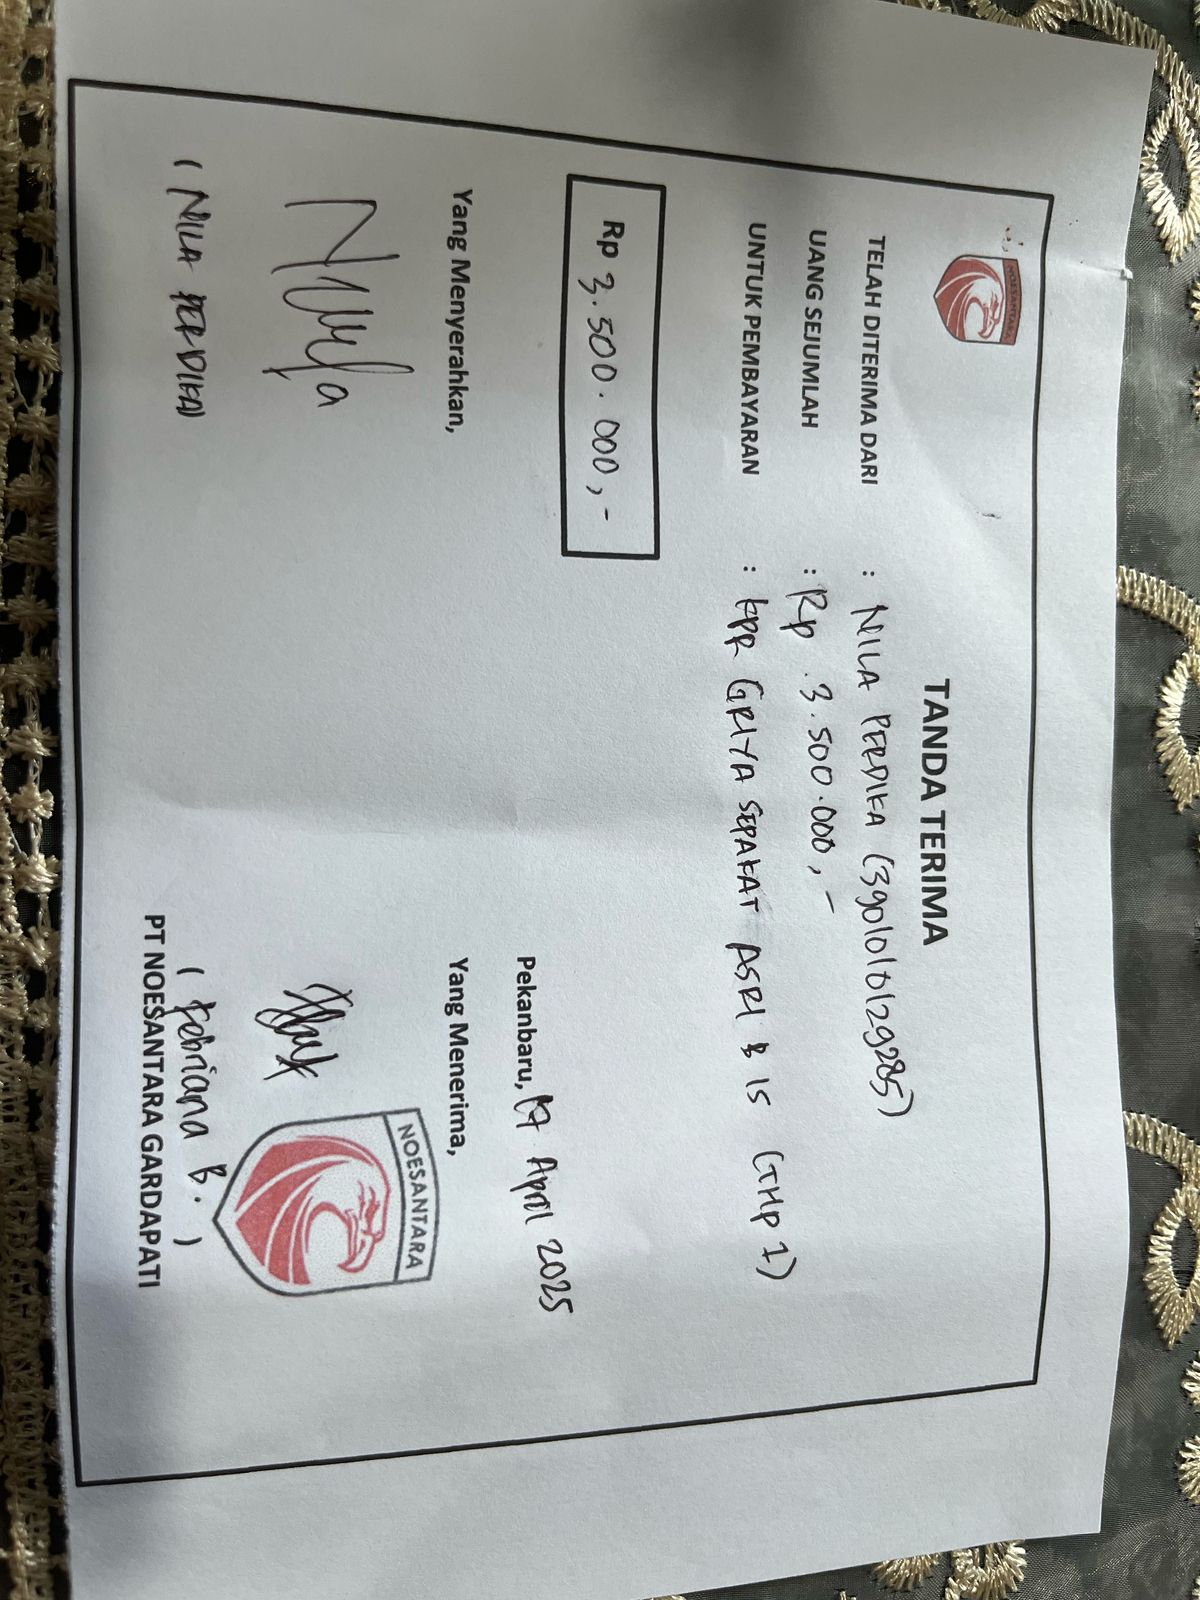 NOESANTARA
TANDA TERIMA
TELAH DITERIMA DARI : NILA PERDIKA (3901010129285)
UANG SEJUMLAH : Rp. 3.500.000,-
UNTUK PEMBAYARAN : KPR GRIYA SEPAKAT ASRI B 15 (THP 1)
Rp 3.500.000,-
Pekanbaru, 17 April 2025
Yang Menyerahkan, Yang Menerima,
Nila
NOESANTARA
(NILA PERDIKA) (Febriana B.)
PT NOESANTARA GARDAPATI